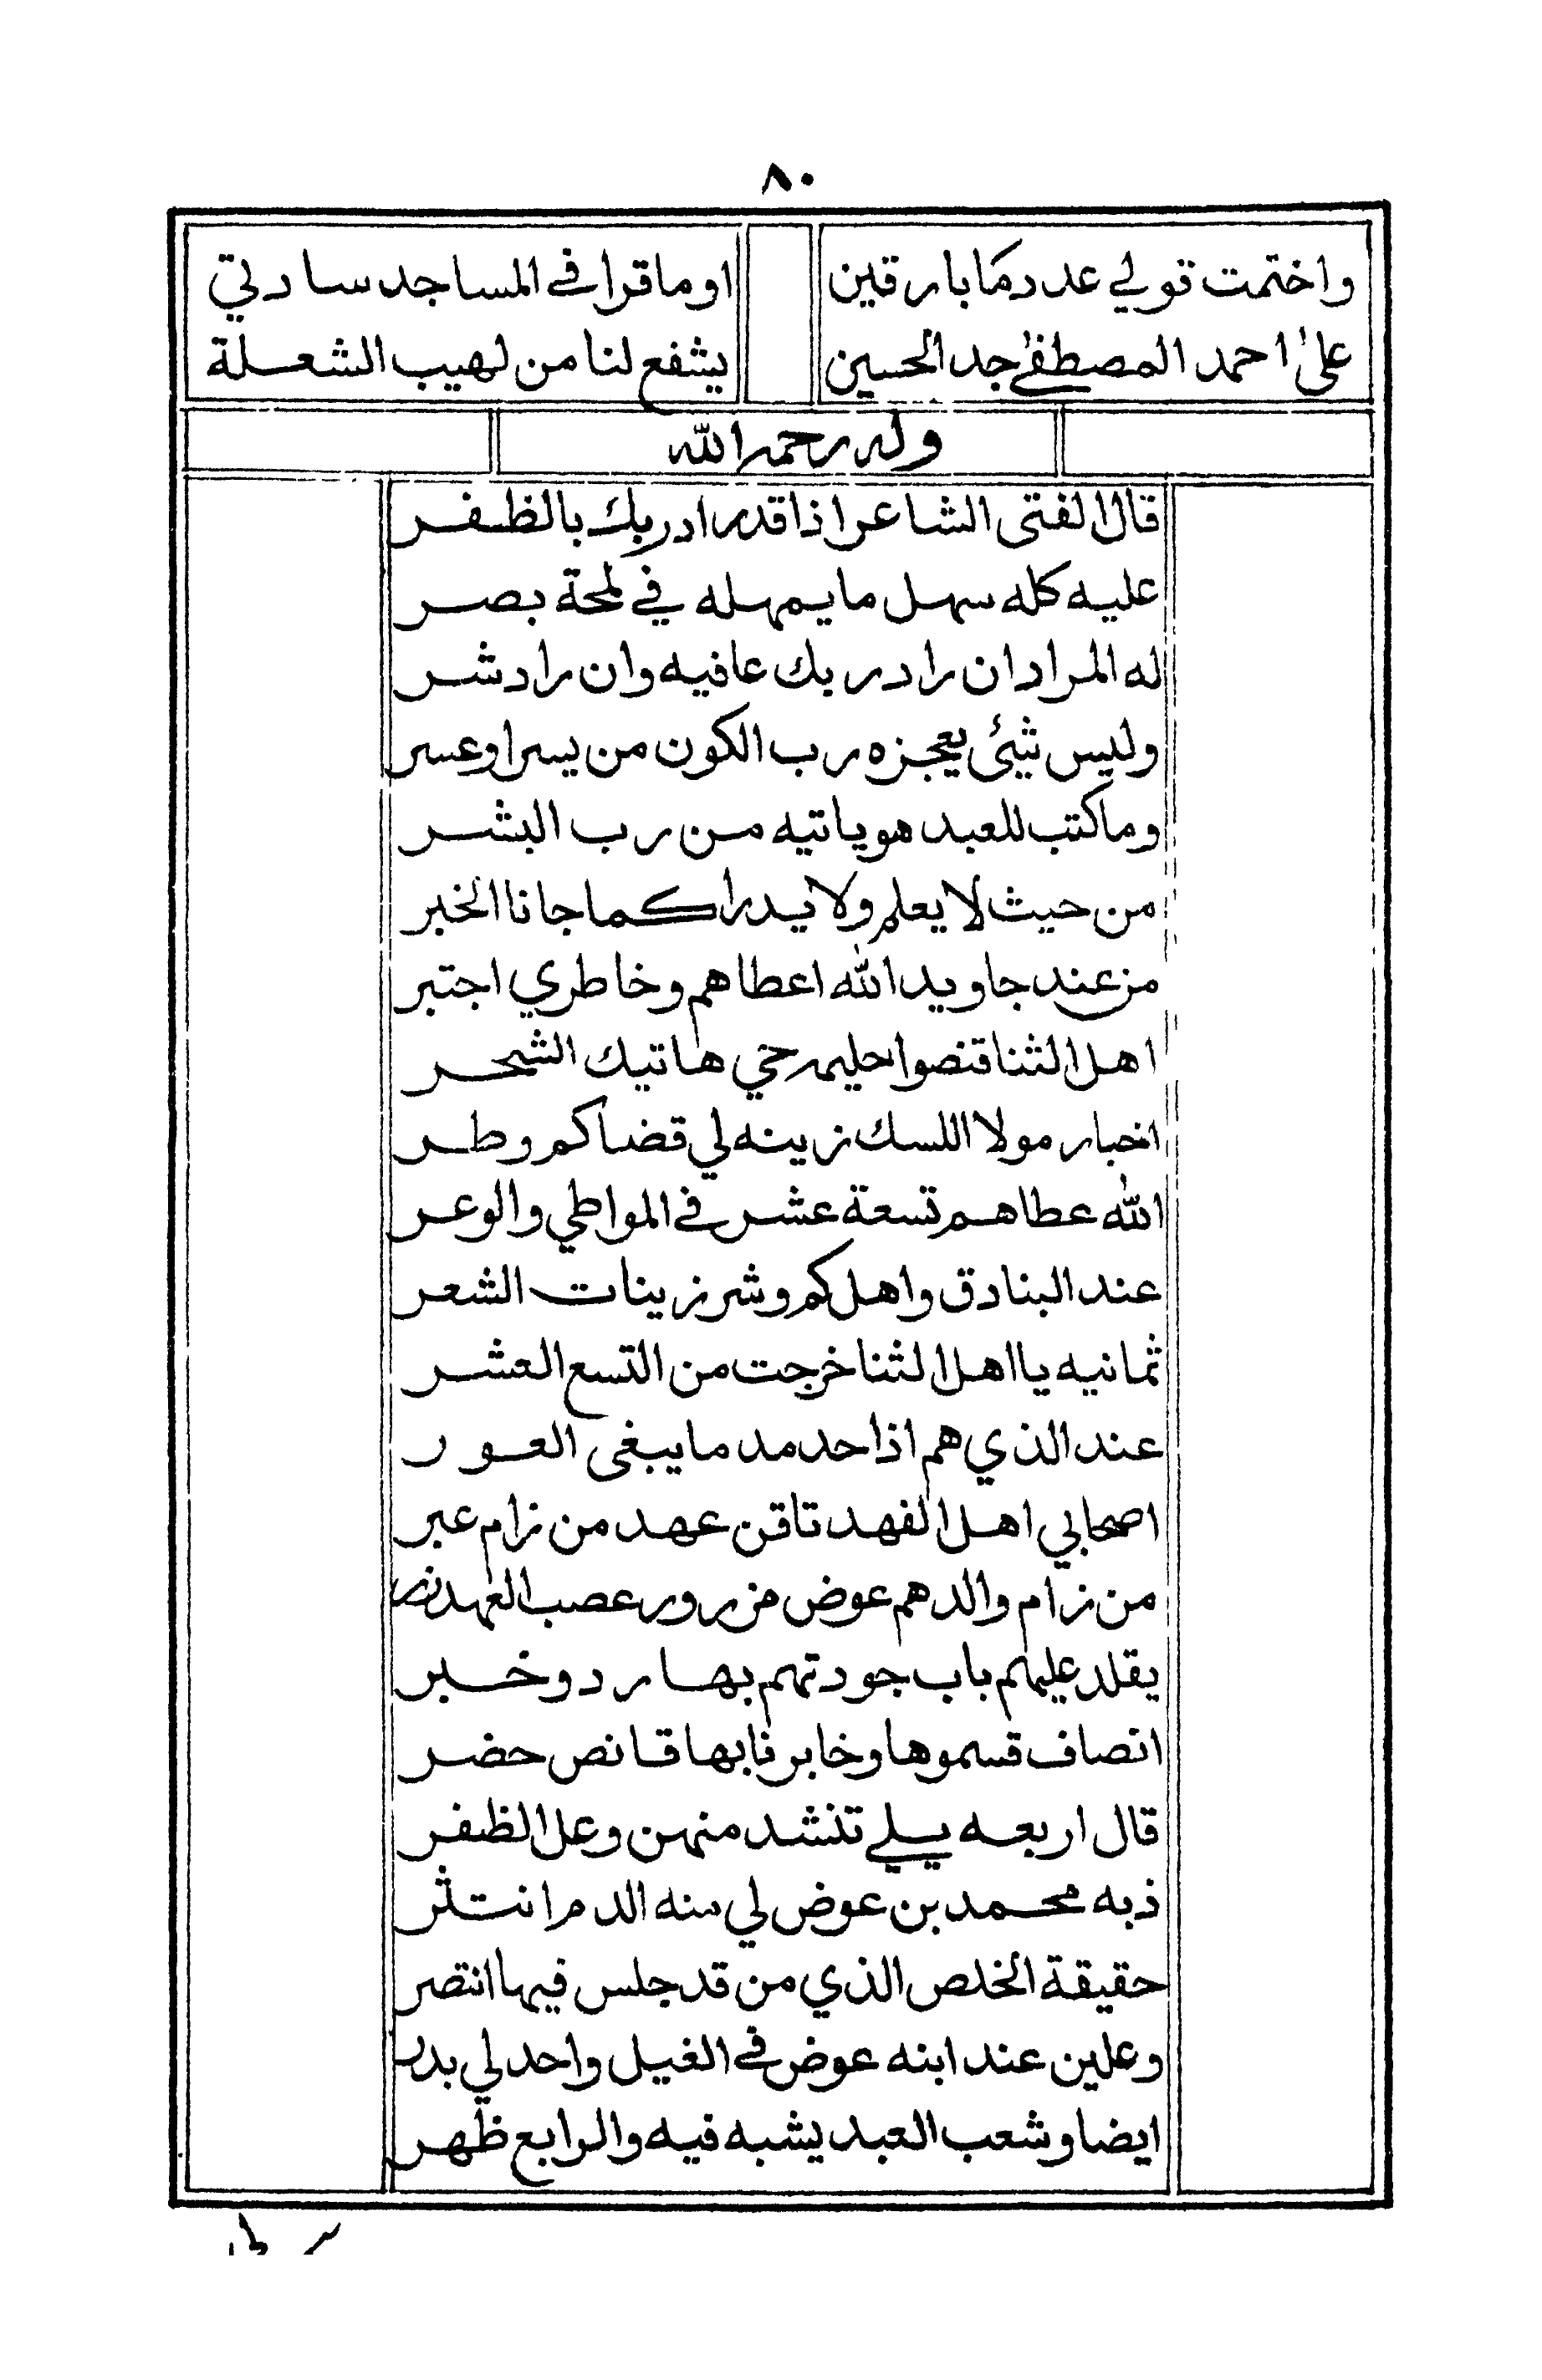 ٨٠
واختمت قولي عدد ما بارقين اوما قرا في المساجد سادتي
على احمد المصطفى جد الحسين يشفع لنا من لهيب الشعلة
وله رحمه الله
قال الفتى الشاعر اذا قدر ادربك بالظفر
عليه كله سهل ما يمهله في لمحة بصر
له المراد ان راد ربك عافيه وان راد شر
وليس شيئ يعجزه رب الكون من يسر اوعسر
وما كتب للعبد هو ياتيه من رب البشر
من حيث لا يعلم ولا يدرا كما جانا الخبر
من عند جاويد الله اعطاهم وخاطري اجتبر
اهل الثنا قنصوا حليمر حي هاتيك الشحر
اخبار مولا اللسك زينه لي قضاكم وطر
الله عطاهم تسعة عشر في المواطي والوعر
عند البنادق واهلكم وشر زينات الشعر
ثمانيه يا اهل الثنا خرجت من التسع العشر
عند الذي هم اذا حد مد ما يبغى العور
اصحابي اهل الفهد تاقن عهد من زام عبر
من زام والدهم عوض من رور عصب العهد
يقلد عليهم باب جودتهم بها رد وخبر
انصاف قسموها وخابرنا بها قانص حضر
قال اربعه يسلي تنشد منهن وعل الظفر
ذبه محمد بن عوض لي منه الدم انتثر
حقيقة الخلص الذي من قد جلس فيها انتصر
وعلين عند ابنه عوض في الغيل واحد لي بدر
ايضا وشعب العبد يشبه فيه والرابع ظهر